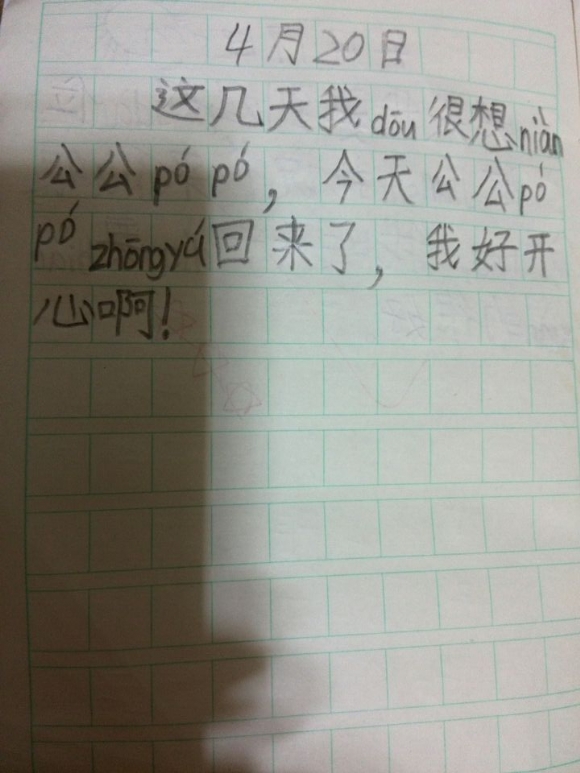 4月20日
这几天我dōu很想niàn
公公pó pó，今天公公pó
pó zhōngyú回来了，我好开
心啊！